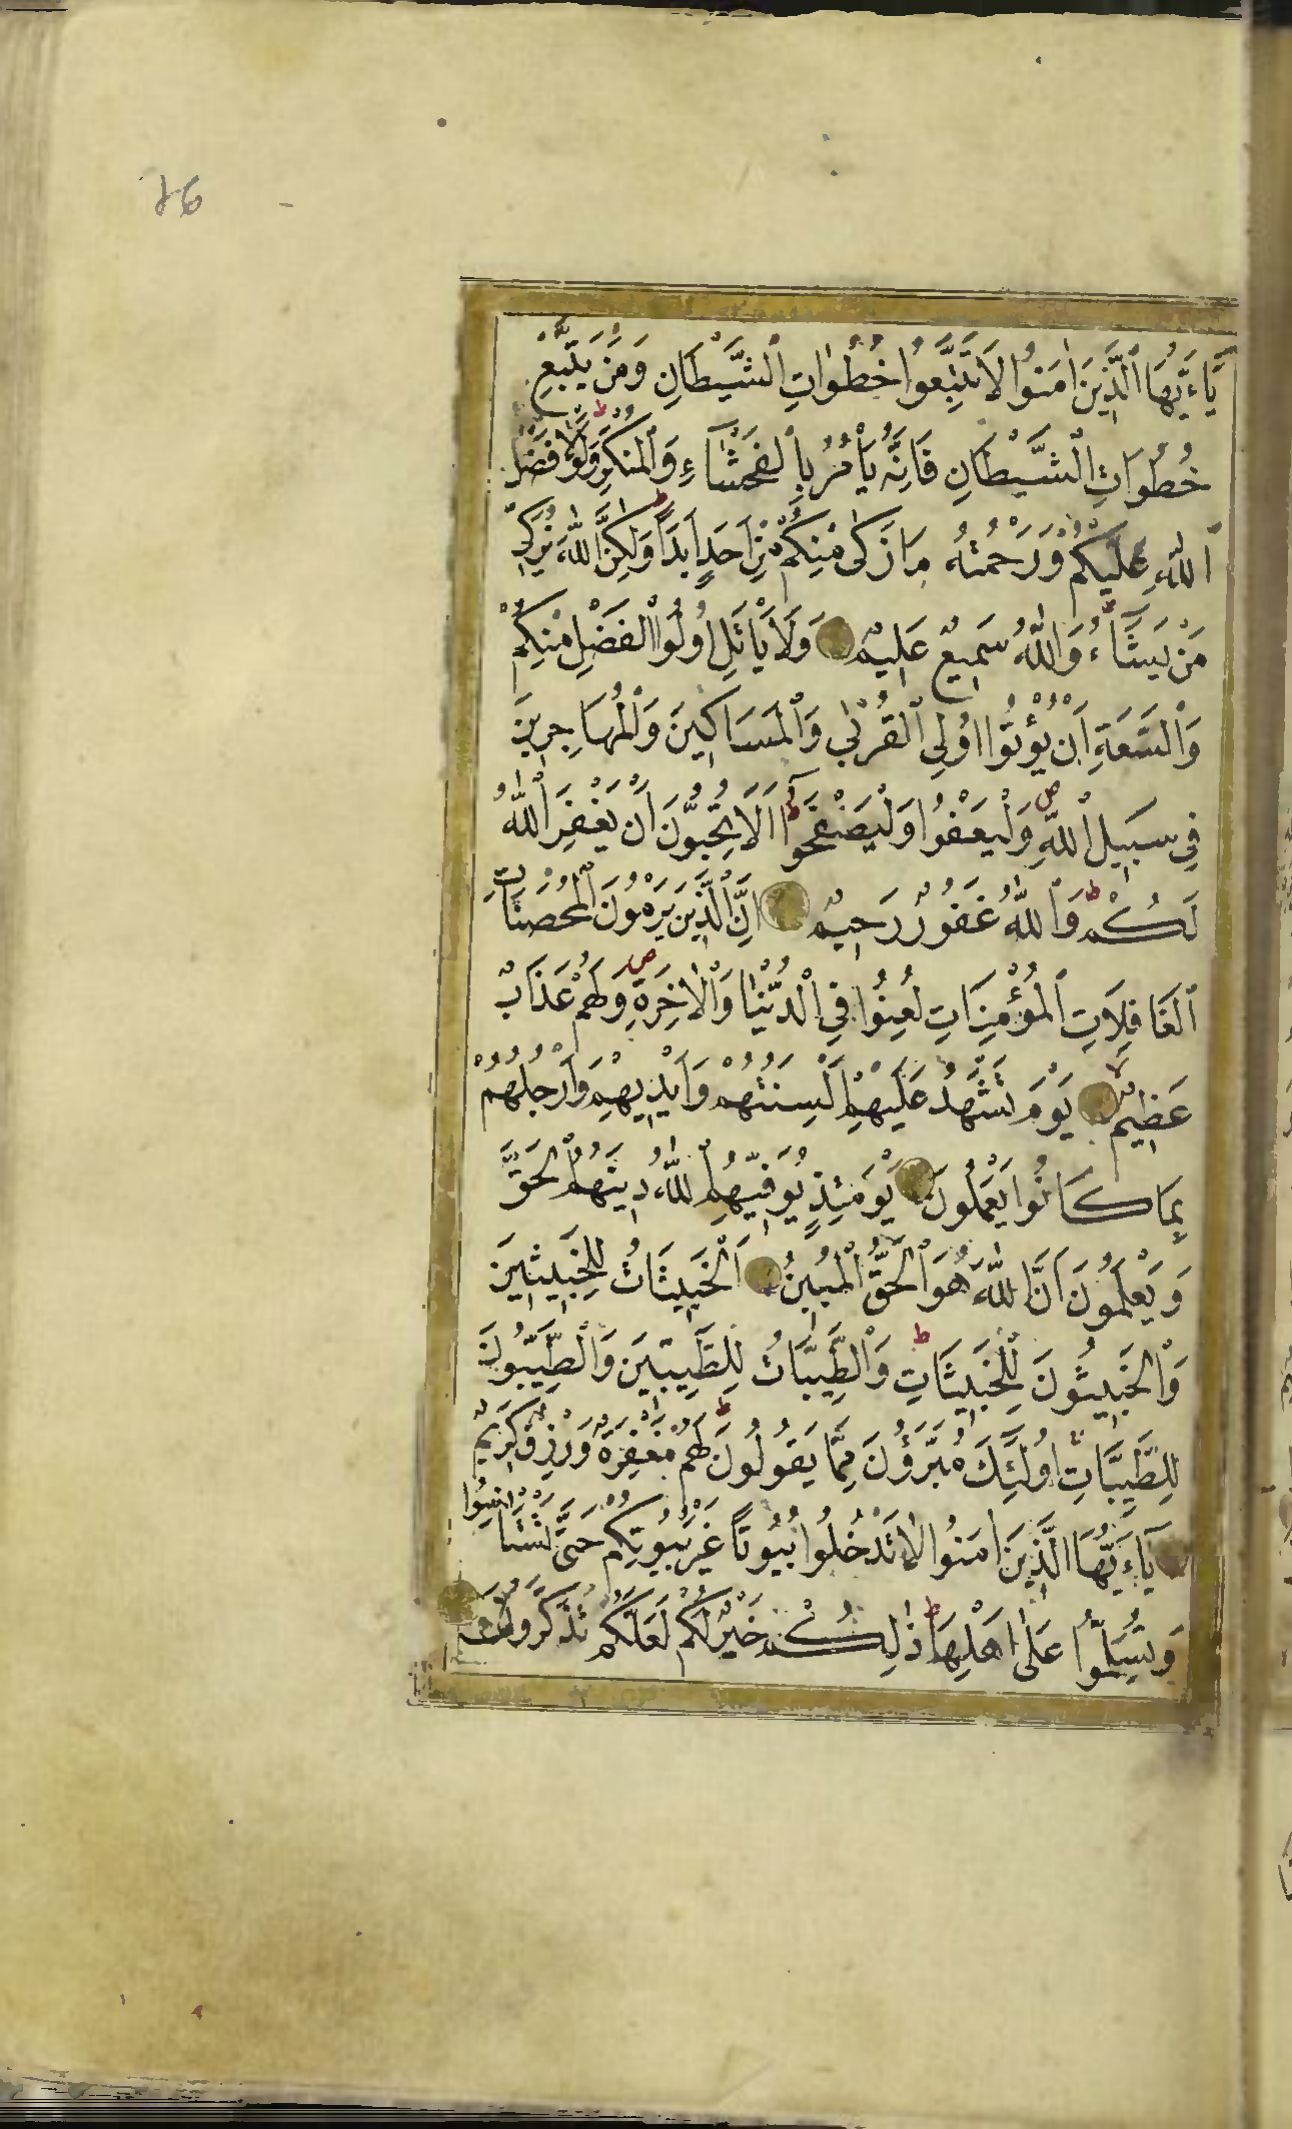 يَاءَيُّهَا الَّذِينَ اٰمَنُوا لَا تَتَّبِعُوا خُطُوَاتِ الشَّيْطَانِ وَمَنْ يَتَّبِعْ
خُطُوَاتِ الشَّيْطَانِ فَاِنَّهُ يَأْمُرُ بِالْفَحْشَاءِ وَالْمُنْكَرِ وَلَوْلَا فَضْلُ
اللّٰهِ عَلَيْكُمْ وَرَحْمَتُهُ مَا زَكٰى مِنْكُمْ مِنْ اَحَدٍ اَبَدًا وَلٰكِنَّ اللّٰهَ يُزَكِّي
مَنْ يَشَاءُ وَاللّٰهُ سَمِيعٌ عَلِيمٌ وَلَا يَأْتَلِ اُولُوا الْفَضْلِ مِنْكُمْ
وَالسَّعَةِ اَنْ يُؤْتُوا اُولِي الْقُرْبٰى وَالْمَسَاكِينَ وَالْمُهَاجِرِينَ
فِي سَبِيلِ اللّٰهِ وَلْيَعْفُوا وَلْيَصْفَحُوا اَلَا تُحِبُّونَ اَنْ يَغْفِرَ اللّٰهُ
لَكُمْ وَاللّٰهُ غَفُورٌ رَحِيمٌ اِنَّ الَّذِينَ يَرْمُونَ الْمُحْصَنَاتِ
الْغَافِلَاتِ الْمُؤْمِنَاتِ لُعِنُوا فِي الدُّنْيَا وَالْاٰخِرَةِ وَلَهُمْ عَذَابٌ
عَظِيمٌ يَوْمَ تَشْهَدُ عَلَيْهِمْ اَلْسِنَتُهُمْ وَاَيْدِيهِمْ وَاَرْجُلُهُمْ
بِمَا كَانُوا يَعْمَلُونَ يَوْمَئِذٍ يُوَفِّيهِمُ اللّٰهُ دِينَهُمُ الْحَقَّ
وَيَعْلَمُونَ اَنَّ اللّٰهَ هُوَ الْحَقُّ الْمُبِينُ اَلْخَبِيثَاتُ لِلْخَبِيثِينَ
وَالْخَبِيثُونَ لِلْخَبِيثَاتِ وَالطَّيِّبَاتُ لِلطَّيِّبِينَ وَالطَّيِّبُونَ
لِلطَّيِّبَاتِ اُولٰئِكَ مُبَرَّؤُنَ مِمَّا يَقُولُونَ لَهُمْ مَغْفِرَةٌ وَرِزْقٌ كَرِيمٌ
يَاءَيُّهَا الَّذِينَ اٰمَنُوا لَا تَدْخُلُوا بُيُوتًا غَيْرَ بُيُوتِكُمْ حَتّٰى تَسْتَأْنِسُوا
وَتُسَلِّمُوا عَلٰى اَهْلِهَا ذٰلِكُمْ خَيْرٌ لَكُمْ لَعَلَّكُمْ تَذَكَّرُونَ